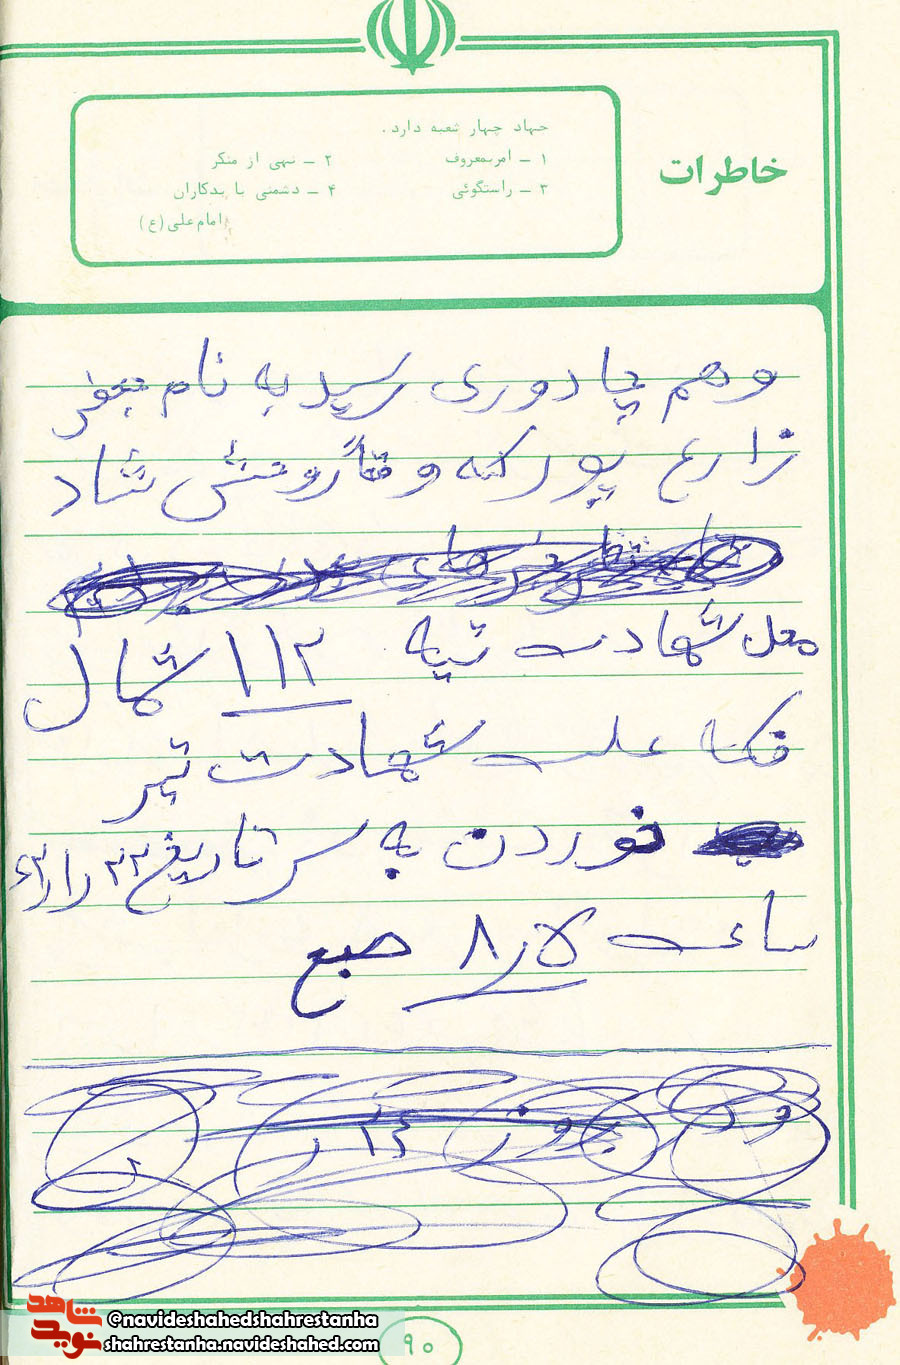 خاطرات
جهاد چهار شعبه دارد.
۱ ـ امربمعروف ۲ ـ نهی از منکر
۳ ـ راستگوئی ۴ ـ دشمنی با بدکاران
امام علی (ع)
و هم چادوری رسید به نام جعفر
زارع پور که و شاد
محل شهادت تپه ۱۱۲ شمال
فکه علت شهادت تیر
خوردن به سر تاریخ
ساعت ۸ صبع
روز
@navideshahedshahrestanha
shahrestanha.navideshahed.com
شاهد
نوید
۹۰